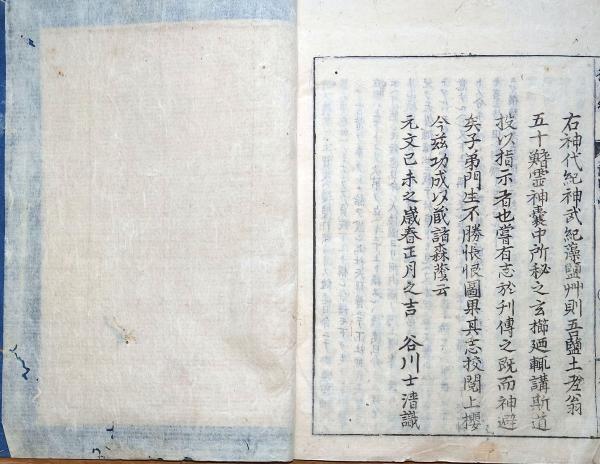 右神代紀神武紀藻鹽艸則吾鹽土老翁
五十鰭霊神嚢中所秘之玄櫛廼輙講斯道
投以指示者也嘗有志於刋傳之既而神避
矣子弟門生不勝悵恨圖果其志校閲上櫻
今茲功成以蔵諸森蔭云
元文己未之歳春正月之吉　谷川士清識